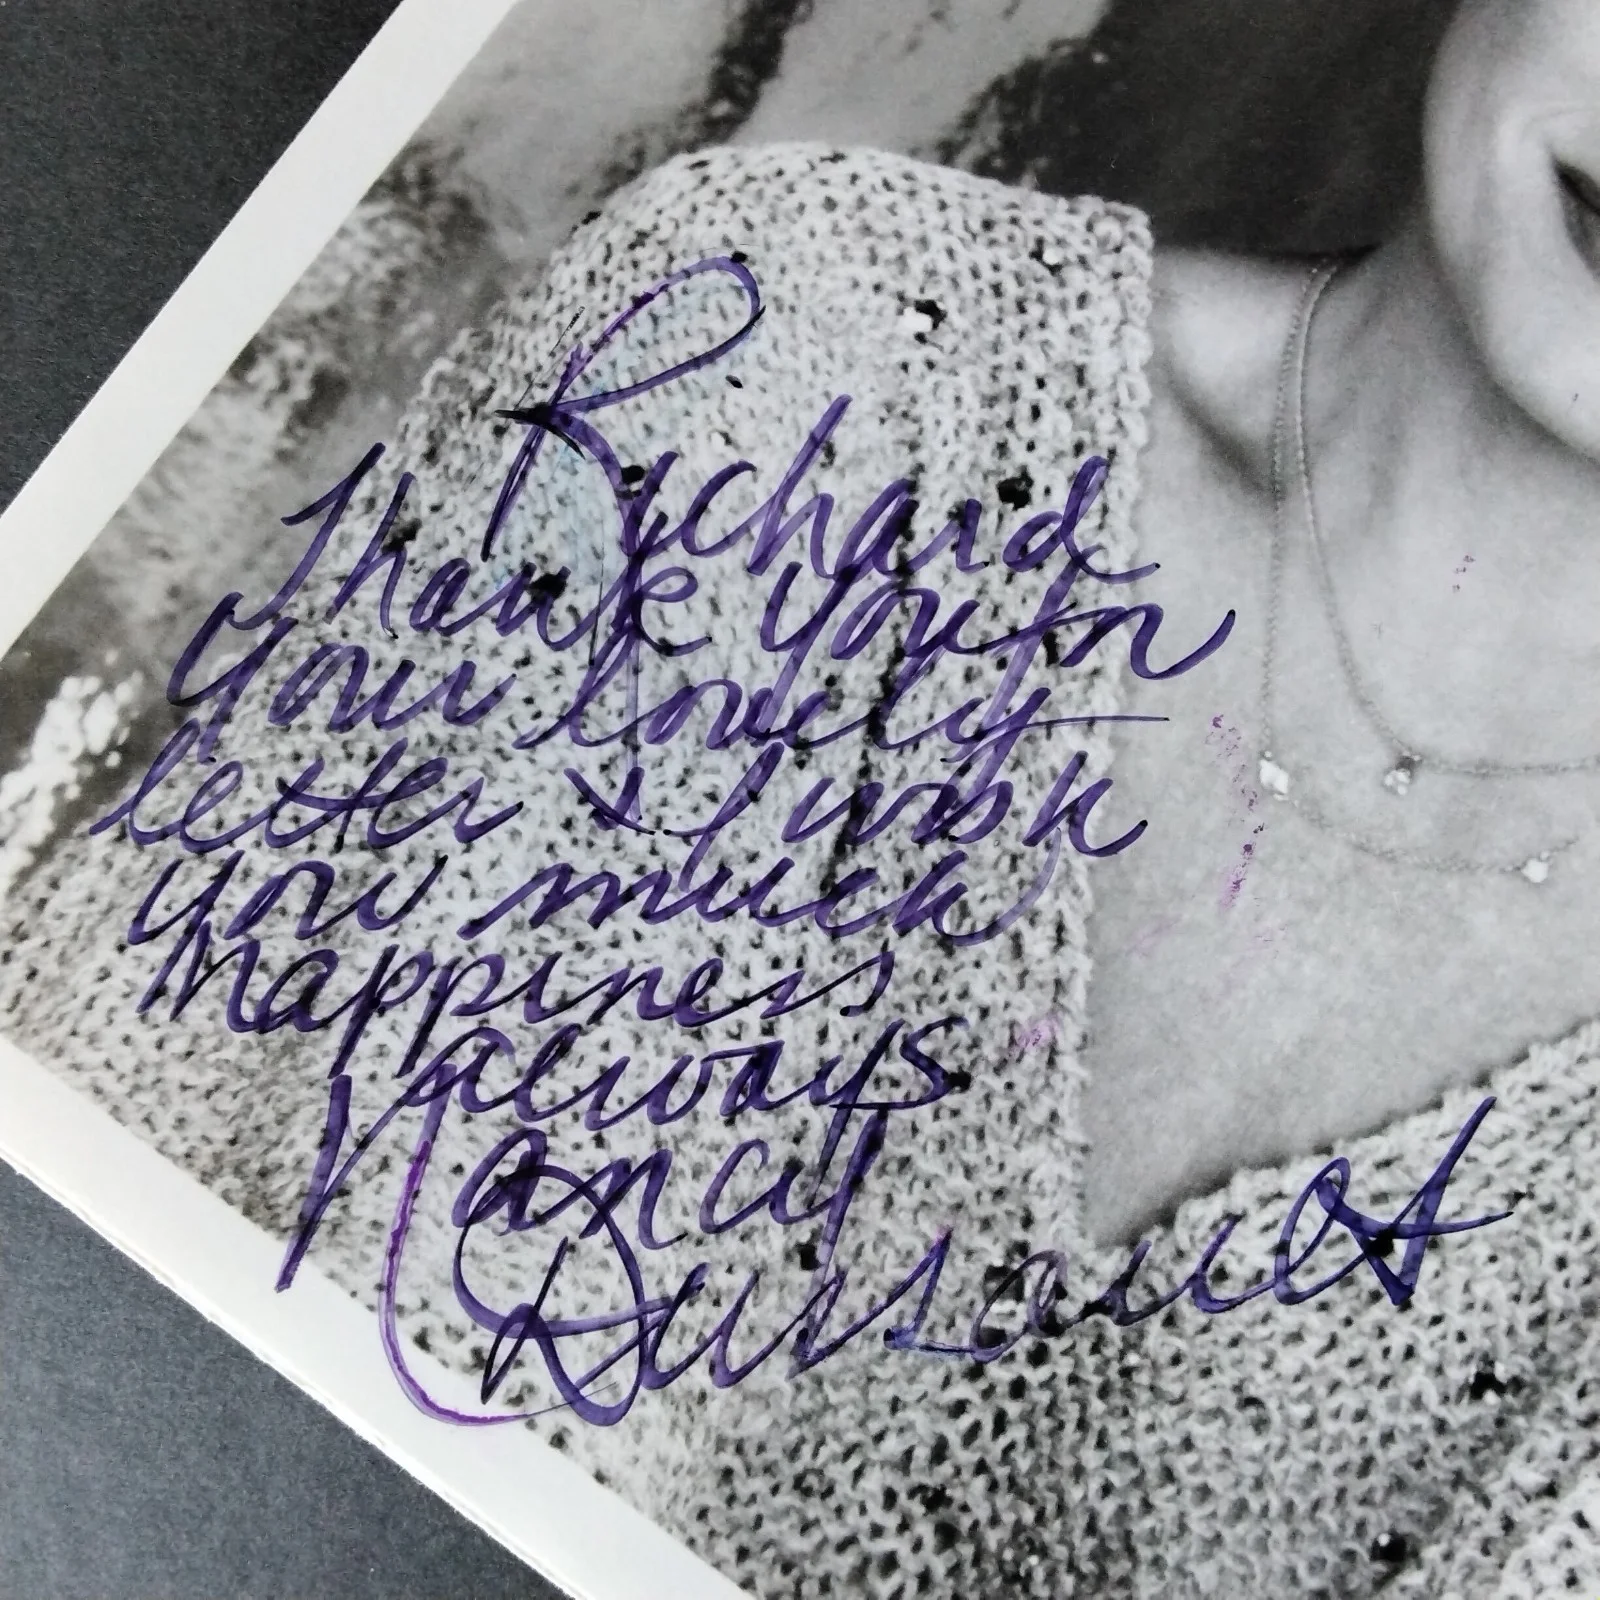 Richard
Thank you for
your lovely
letter & I wish
you much
happiness
always
Nancy
Dussault